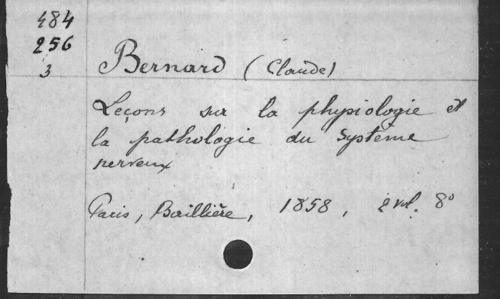 484
256
3
Bernard (Claude)
Leçons sur la physiologie et
la pathologie du système
nerveux
Paris, Baillière, 1858, 2 vol. 8°